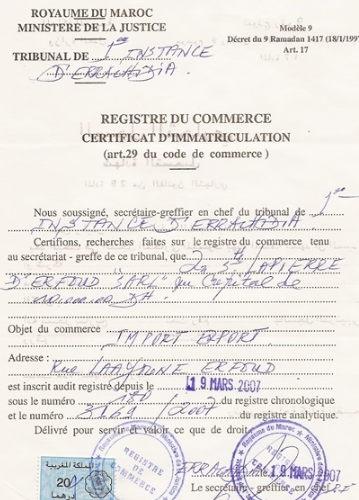 ROYAUME DU MAROC
MINISTERE DE LA JUSTICE
Modèle 9
Décret du 9 Ramadan 1417 (18/1/1997
Art. 17
TRIBUNAL DE 1ère INSTANCE
D'ERRACHIDIA
REGISTRE DU COMMERCE
CERTIFICAT D'IMMATRICULATION
(art.29 du code de commerce)
Nous soussigné, secrétaire-greffier en chef du tribunal de 1ère
INSTANCE D'ERRACHIDIA
Certifions, recherches faites sur le registre du commerce tenu
au sécrétariat - greffe de ce tribunal, que LAPIERRE
D'ERFOUD SARL" au Capital de
DH
Objet du commerce IMPORT EXPORT
Adresse :
Rue LAAYOUNE ERFOUD
est inscrit audit registre depuis le 19 MARS. 2007
sous le numéro du registre chronologique
et le numéro /2007 du registre analytique.
Délivré pour servir et valoir ce que de droit
المملكة المغربية
20
REGISTRE
DE
COMMERCE
MARS. 2007
Le secrétaire-greffier en